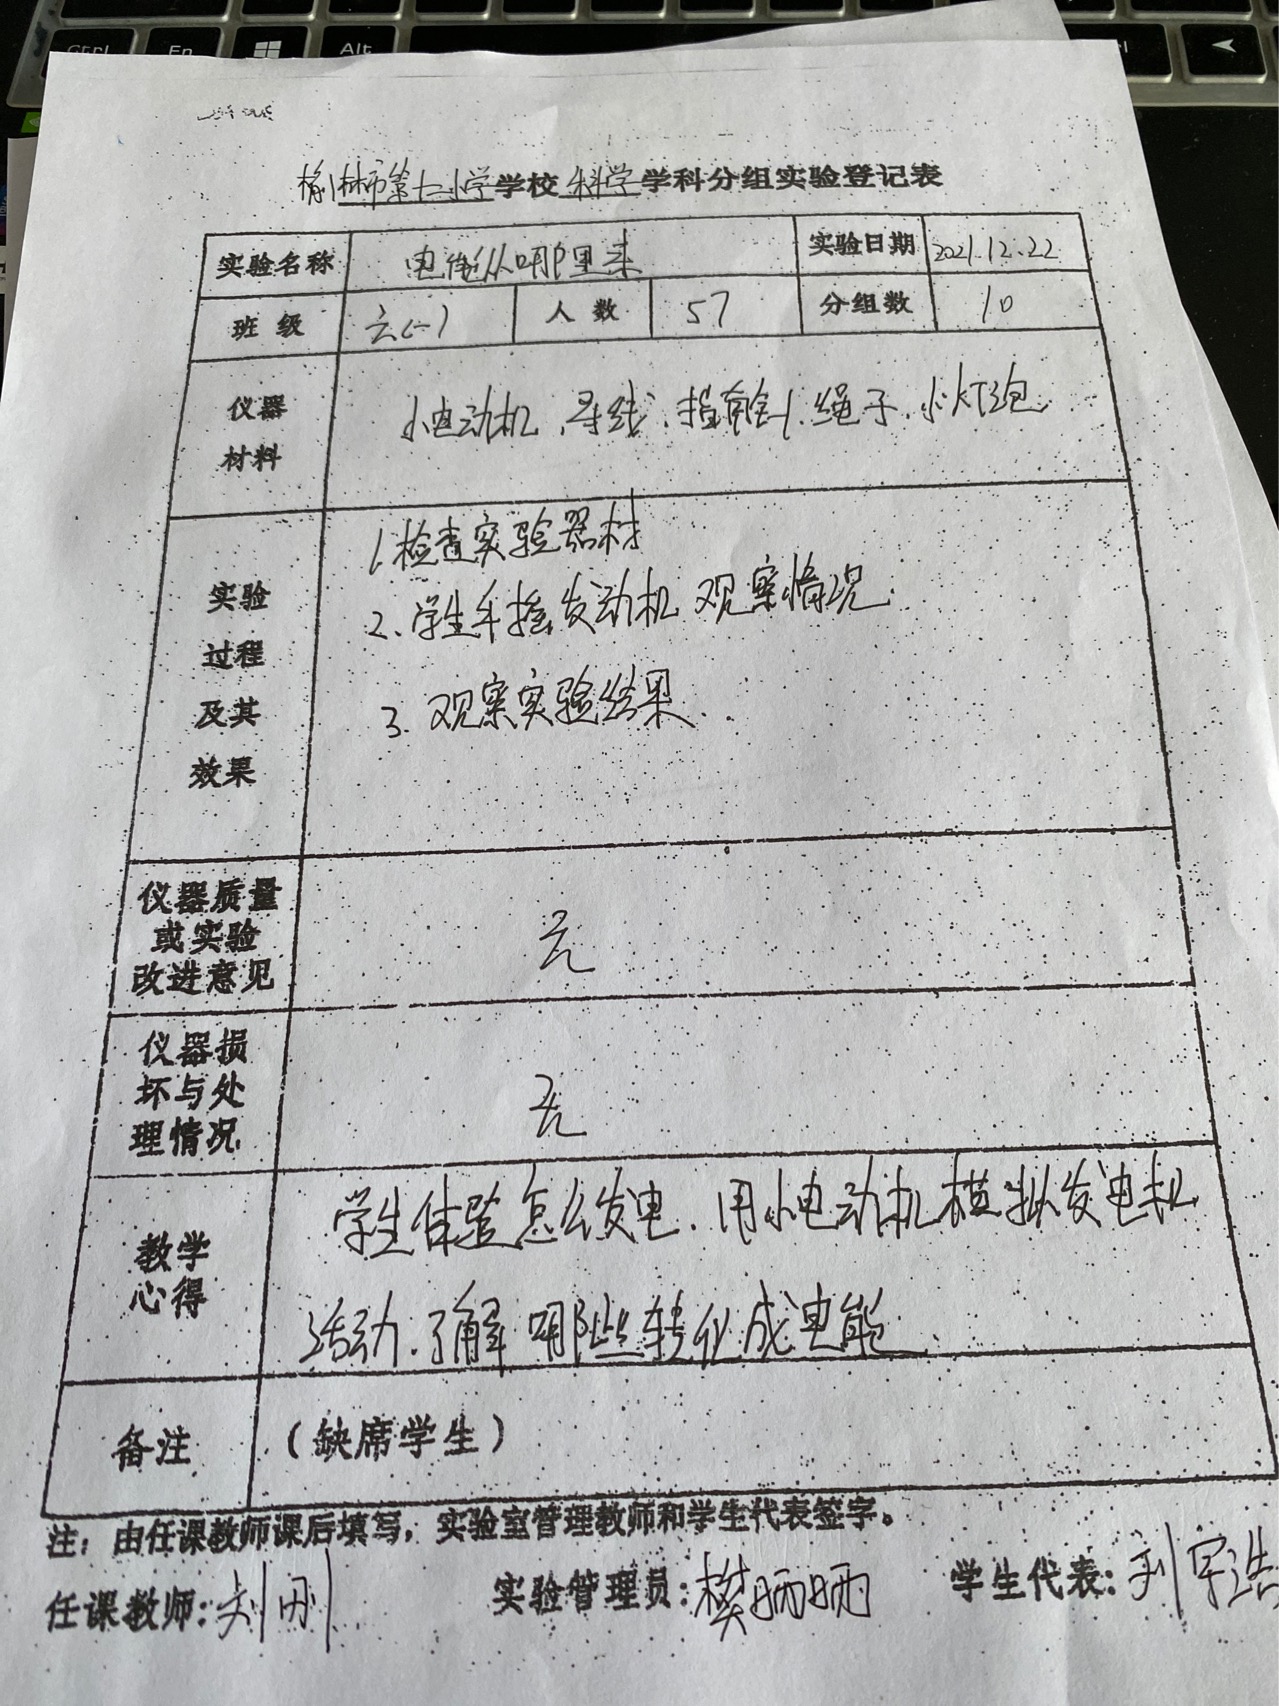 Ctrl
Fn
Alt
榆林市第十二小学学校 科学 学科分组实验登记表
实验名称 电能从哪里来 实验日期 2021.12.22
班 级 六(一) 人 数 57 分组数 10
仪器
材料
小电动机、导线、指南针、绳子、小灯泡
实验
过程
及其
效果
1.检查实验器材
2、学生手摇发动机 观察情况.
3.观察实验结果.
仪器质量
或实验
改进意见
无
仪器损
坏与处
理情况
无
教学
心得
学生体验怎么发电.用小电动机模拟发电机
活动.了解哪些转化成电能.
备注 （缺席学生）
注：由任课教师课后填写，实验室管理教师和学生代表签字。
任课教师:刘刚 实验管理员:樊 学生代表:刘宇浩